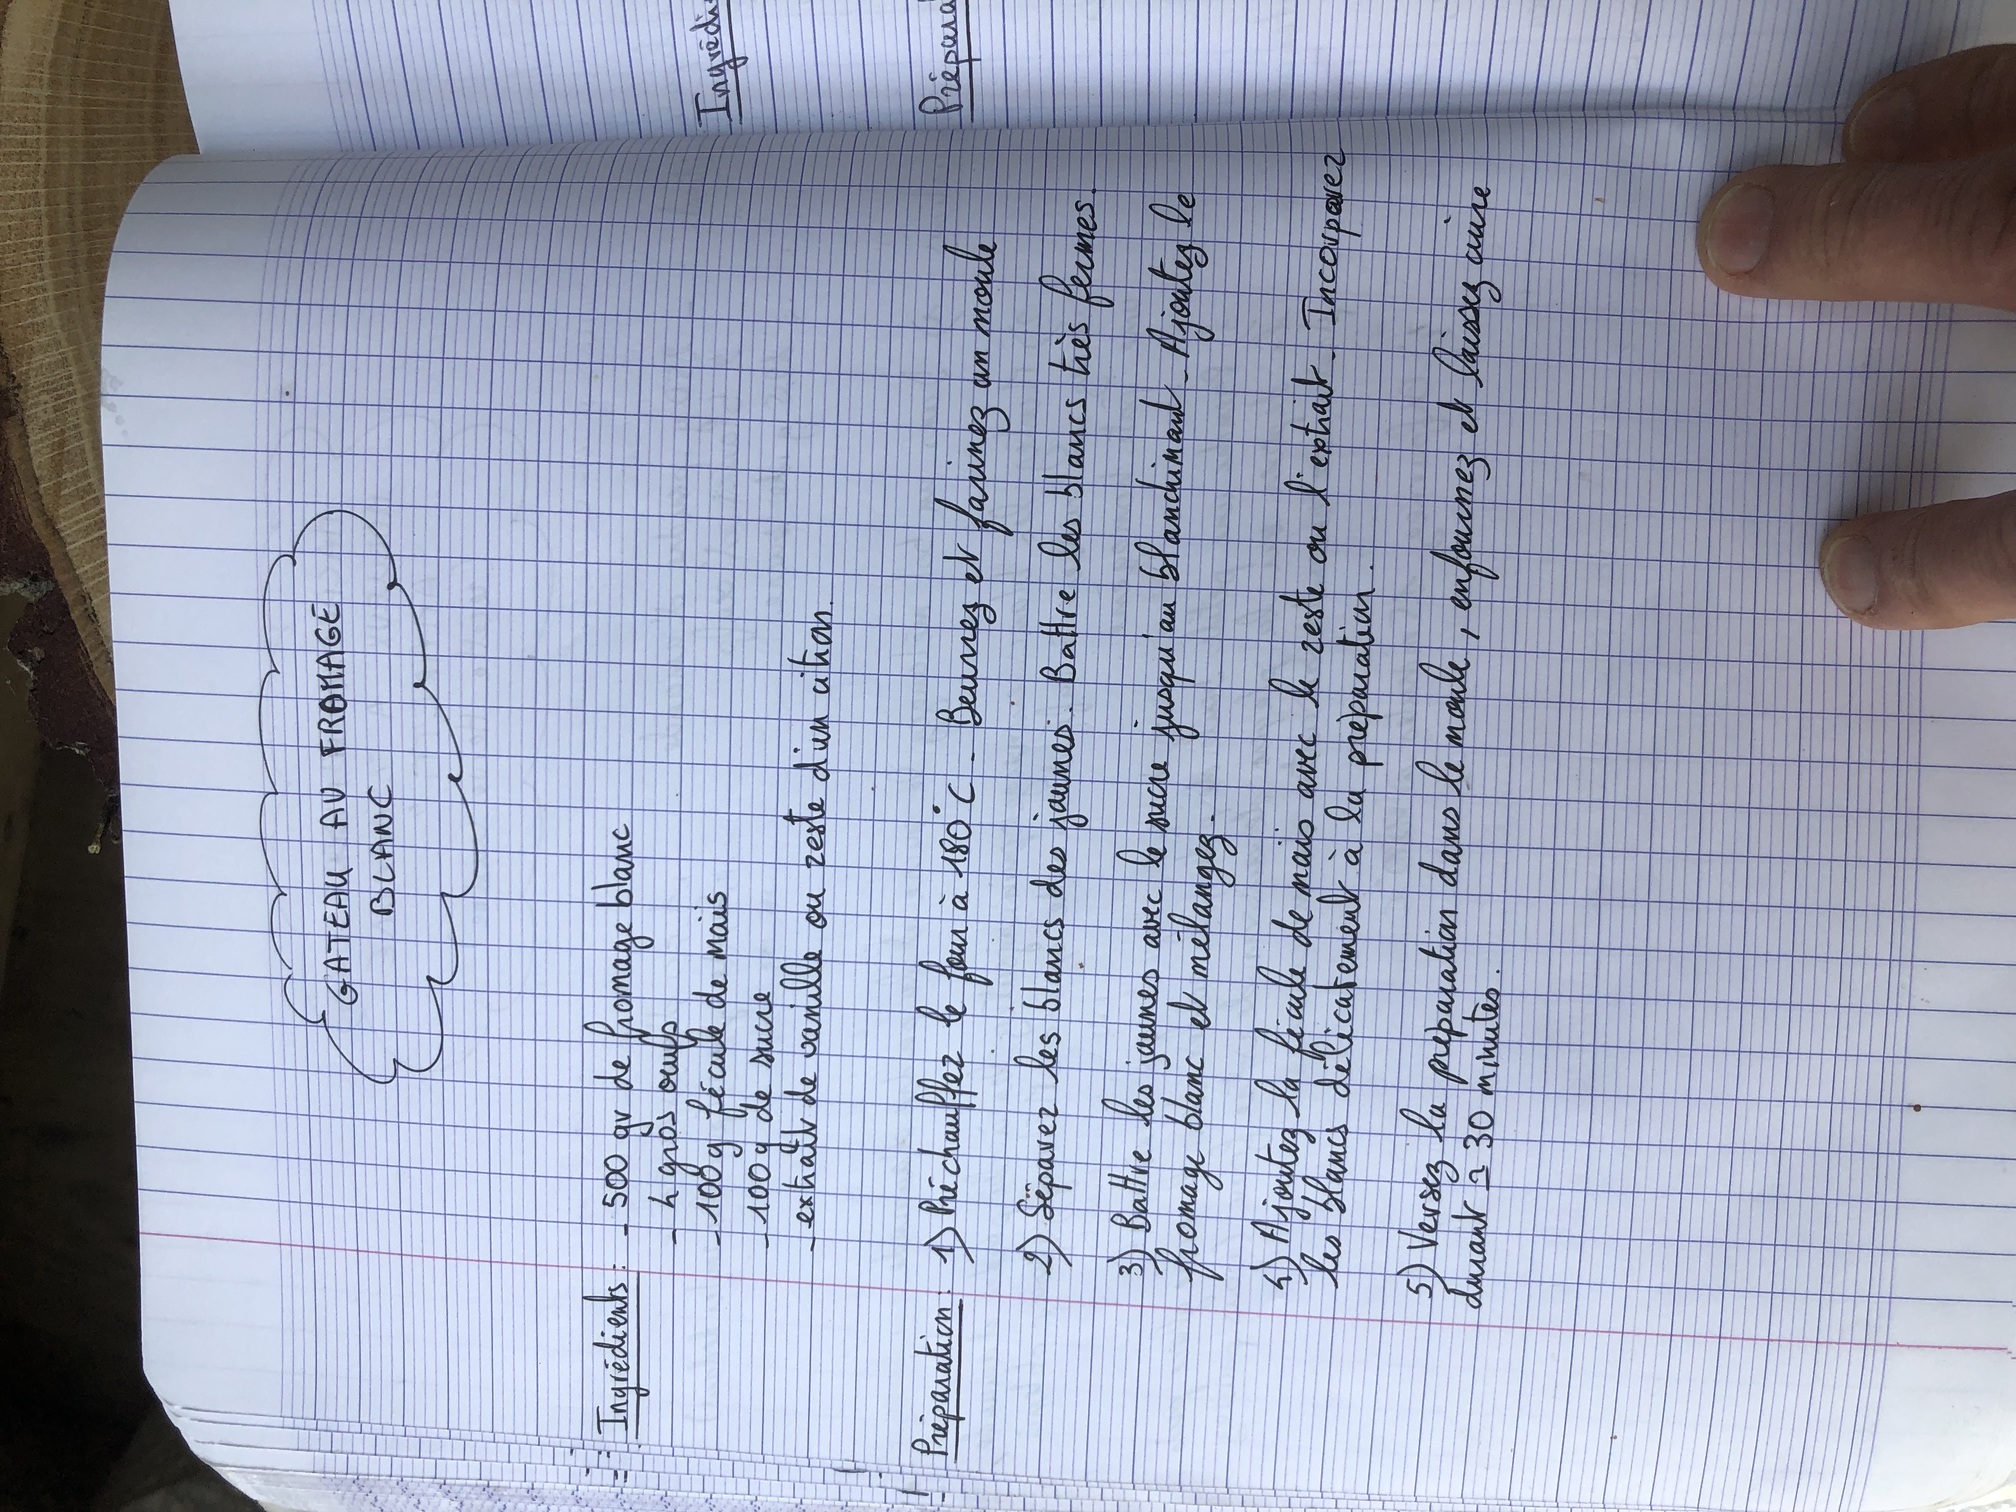 GATEAU AU FROMAGE
BLANC
Ingrédients : - 500 gr de fromage blanc
- 4 gros oeufs
- 100 g fécule de maïs
- 100 g de sucre
- extrait de vanille ou zeste d'un citron.
Préparation : 1) Préchauffez le four à 180°C - Beurrez et farinez un moule
2) Séparez les blancs des jaunes. Battre les blancs très fermes.
3) Battre les jaunes avec le sucre jusqu'au blanchimant - Ajoutez le
fromage blanc et mélangez.
4) Ajoutez la fécule de maïs avec le zeste ou l'extrait - Incorporez
les blancs délicatement à la préparation.
5) Versez la préparation dans le moule, enfournez et laissez cuire
durant ≃ 30 minutes.
Ingrédi
Prépara